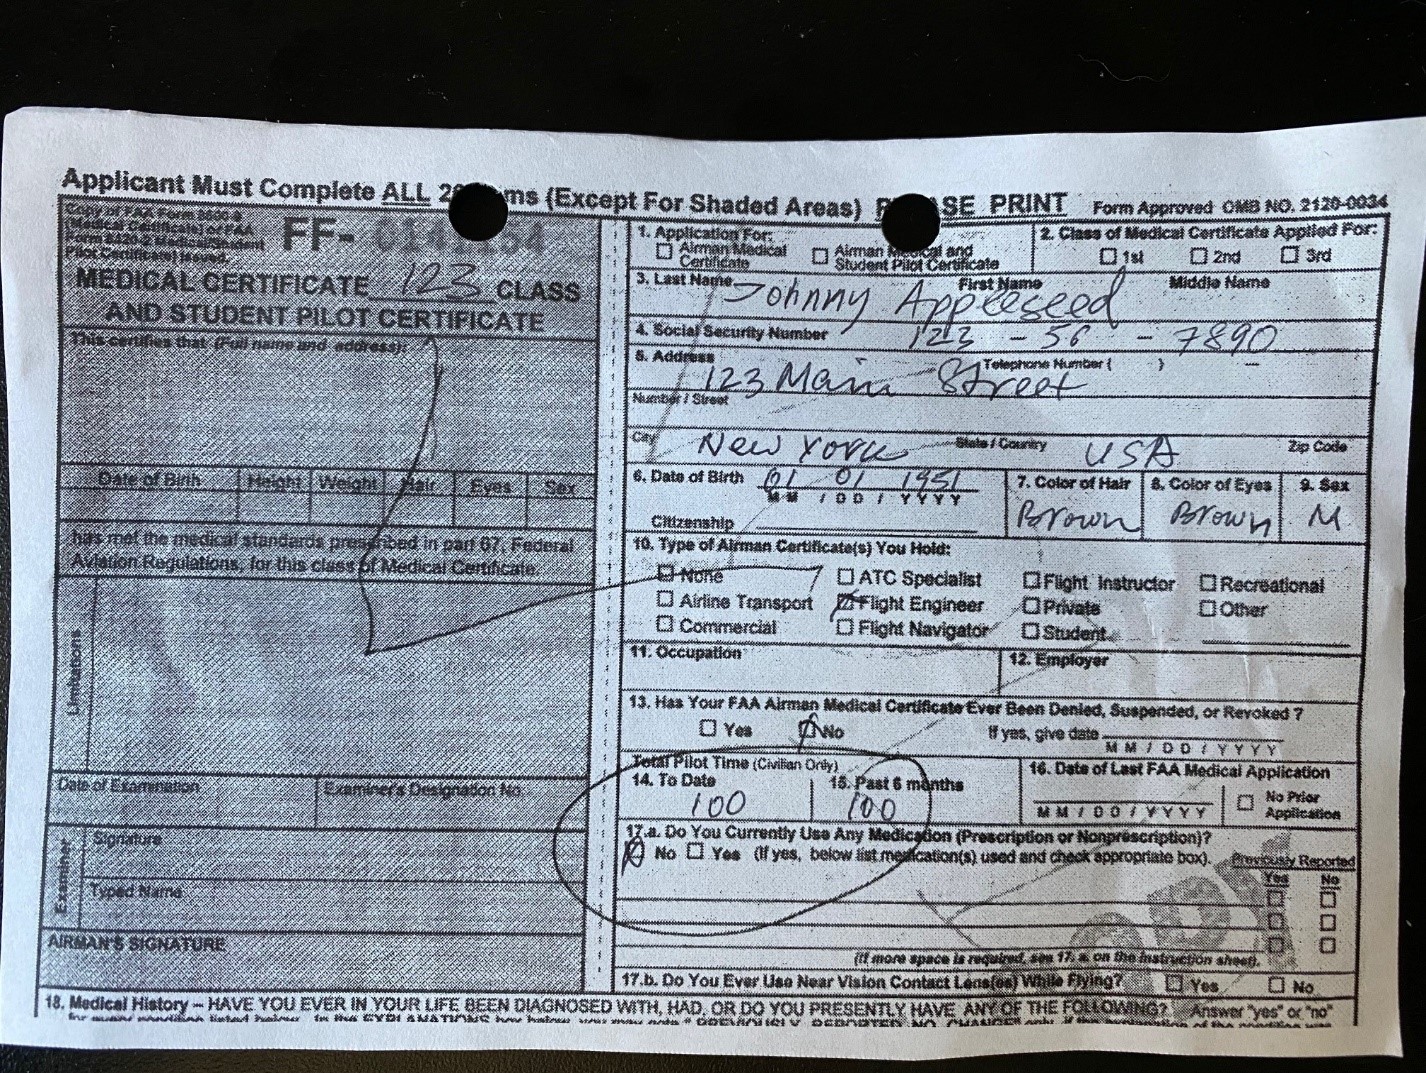 Applicant Must Complete ALL ms (Except For Shaded Areas) SE PRINT Form Approved OMB NO. 2120-0034
Copy of FAA Form 8500-9
(Medical Certificate) or FAA
Form 8420-2 Medical/Student
Pilot Certificate) Issued.
FF-
MEDICAL CERTIFICATE 123 CLASS
AND STUDENT PILOT CERTIFICATE
This certifies that (Full name and address):
Date of Birth Height Weight Hair Eyes Sex
has met the medical standards prescribed in part 67, Federal
Aviation Regulations, for this class of Medical Certificate.
Limitations
Date of Examination Examiner's Designation No.
Examiner
Signature
Typed Name
AIRMAN'S SIGNATURE
1. Application For:
Airman Medical Certificate
Airman Medical and Student Pilot Certificate
2. Class of Medical Certificate Applied For:
1st 2nd 3rd
3. Last Name First Name Middle Name
Johnny Appleseed
4. Social Security Number 123 - 56 - 7890
5. Address Telephone Number ( ) -
123 Main Street
Number / Street
City New York State / Country USA Zip Code
6. Date of Birth 01 01 1951
MM / DD / YYYY
Citizenship
7. Color of Hair
Brown
8. Color of Eyes
Brown
9. Sex
M
10. Type of Airman Certificate(s) You Hold:
None ATC Specialist Flight Instructor Recreational
Airline Transport Flight Engineer Private Other
Commercial Flight Navigator Student
11. Occupation 12. Employer
13. Has Your FAA Airman Medical Certificate Ever Been Denied, Suspended, or Revoked ?
Yes No If yes, give date
MM / DD / YYYY
Total Pilot Time (Civilian Only)
14. To Date 15. Past 6 months
100 100
16. Date of Last FAA Medical Application
MM / DD / YYYY
No Prior Application
17.a. Do You Currently Use Any Medication (Prescription or Nonprescription)?
No Yes (If yes, below list medication(s) used and check appropriate box). Previously Reported
Yes No
(If more space is required, see 17. a. on the instruction sheet).
17.b. Do You Ever Use Near Vision Contact Lens(es) While Flying? Yes No
18. Medical History – HAVE YOU EVER IN YOUR LIFE BEEN DIAGNOSED WITH, HAD, OR DO YOU PRESENTLY HAVE ANY OF THE FOLLOWING? Answer "yes" or "no"